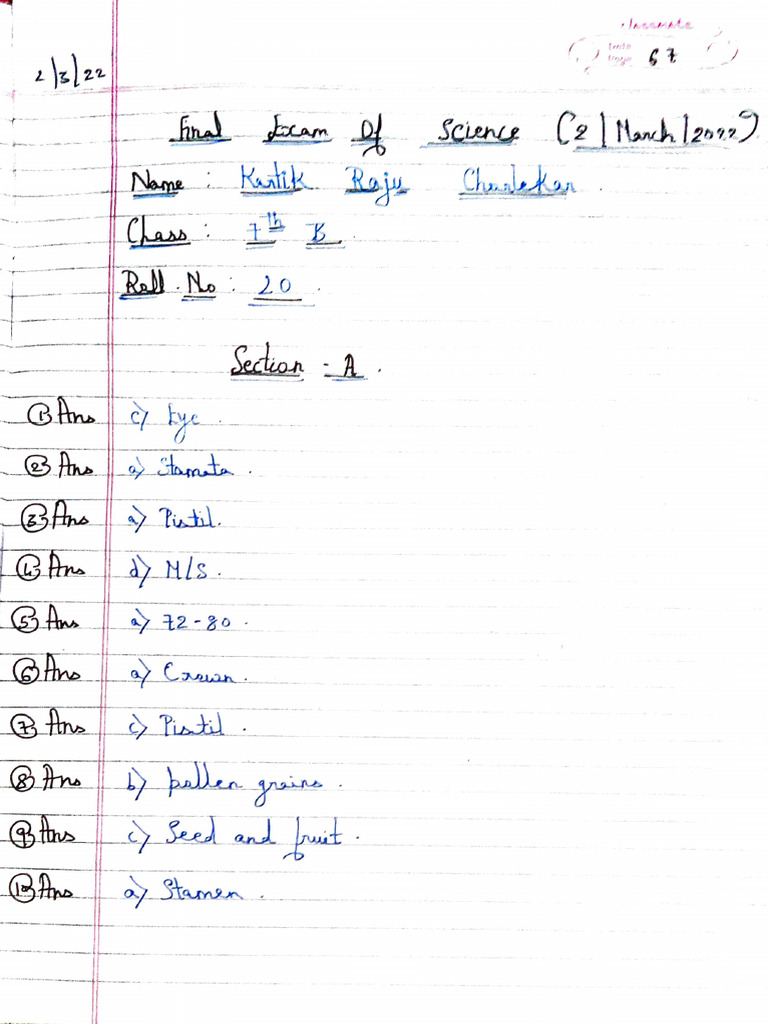 classmate
Date
Page 67
2/3/22
Final Exam Of Science (2/March/2022)
Name : Kartik Raju
Class : 7th B
Roll.No : 20.
Section - A.
1) Ans c) Eye.
2) Ans a) Stamata.
3) Ans a) Pistil.
4) Ans d) M/S.
5) Ans a) 72-80.
6) Ans a) Crown.
7) Ans c) Pistil.
8) Ans b) pollen grains.
9) Ans c) Seed and fruit.
10) Ans a) Stamen.